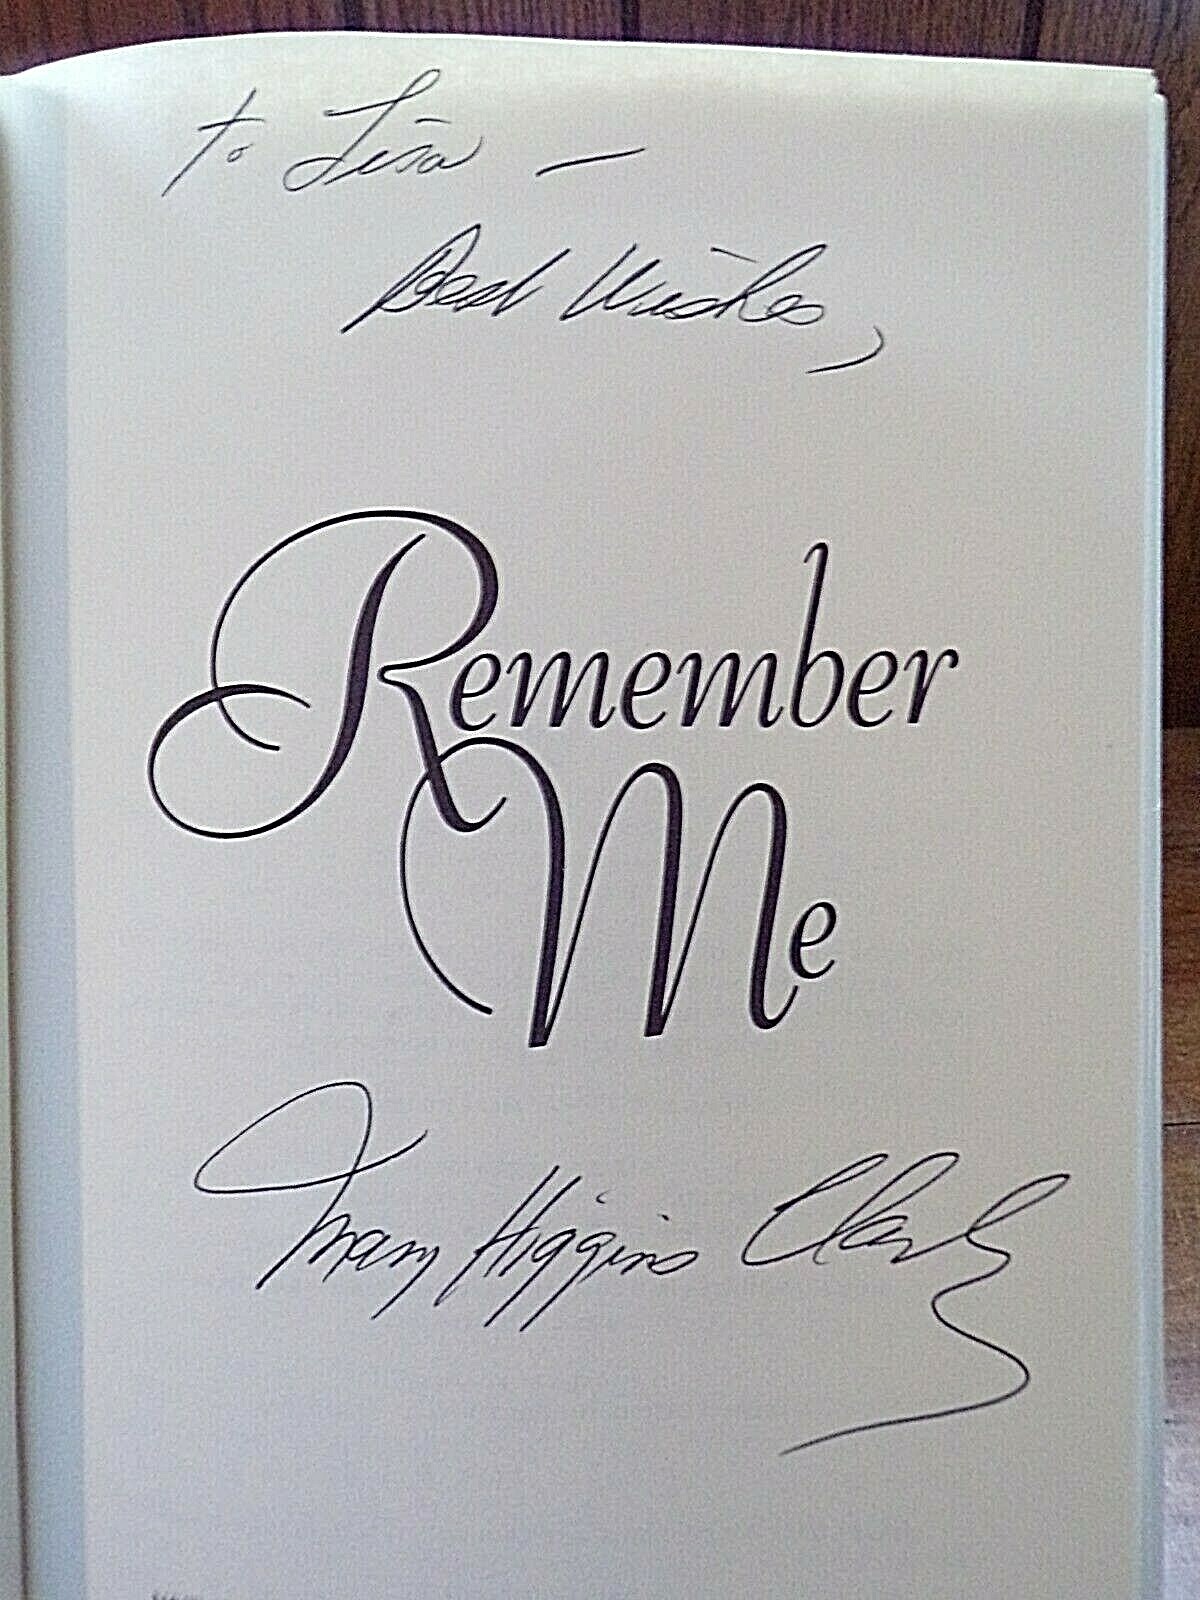 To Lisa —
Best Wishes,
Remember
Me
Mary Higgins Clark